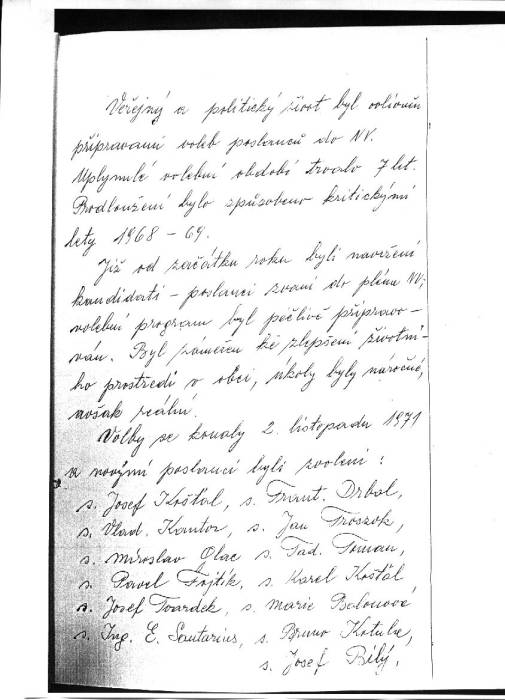 Veřejný a politický život byl ovlivněn
přípravami voleb poslanců do NV.
Uplynulé volební období trvalo 7 let.
Prodloužení bylo způsobeno kritickými
lety 1968 - 69.
Již od začátku roku byli navrženi
kandidáti - poslanci zvaní do pléna NV;
volební program byl pečlivě připravo-
ván. Byl zaměřen ke zlepšení životní-
ho prostředí v obci, úkoly byly náročné,
avšak reální.
Volby se konaly 2. listopadu 1971
a novými poslanci byli zvoleni :
s. Josef Košťál, s. Frant. Drbal,
s. Vlad. Kantor, s. Jan Froszok,
s. Miroslav Olac s. Tad. Toman,
s. Pavel Fojtík, s. Karel Košťál
s. Josef Tvardek, s. Marie Balonová
s. Ing. E. Santarius, s. Bruno Kotula,
s. Josef Bílý,